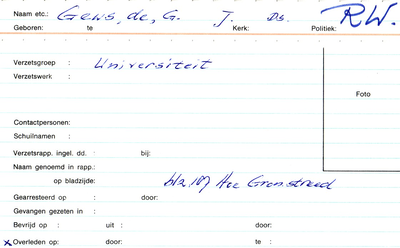 Naam etc.: Geus, de, G. J. Ds. RW.
Geboren: te Kerk: Politiek:
Verzetsgroep : Universiteit
Verzetswerk :
Foto
Contactpersonen:
Schuilnamen :
Verzetsrapp. ingel. dd. : bij:
Naam genoemd in rapp.:
op bladzijde: blz. 107 Hoe Gron. streed
Gearresteerd op : door:
Gevangen gezeten in :
Bevrijd op : uit : door:
x Overleden op: door: te :